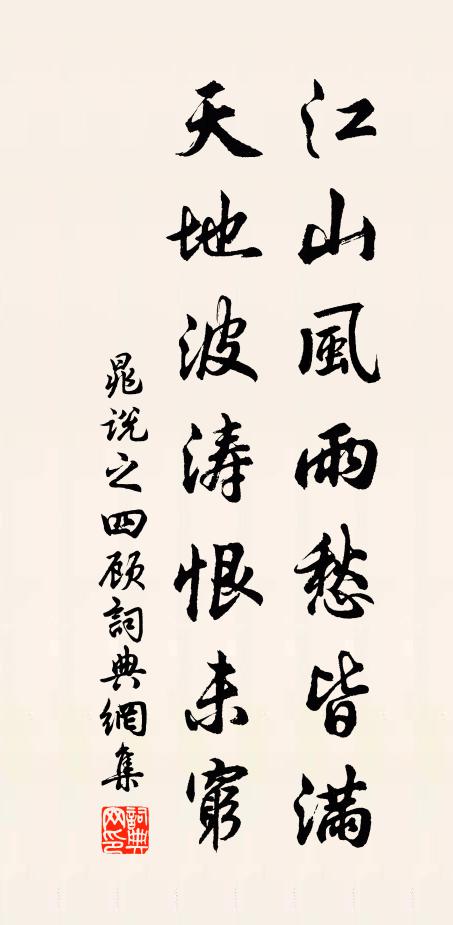 江山風雨愁皆滿
天地波涛恨未窮
晁说之四顾詞典網集
詞典
网印